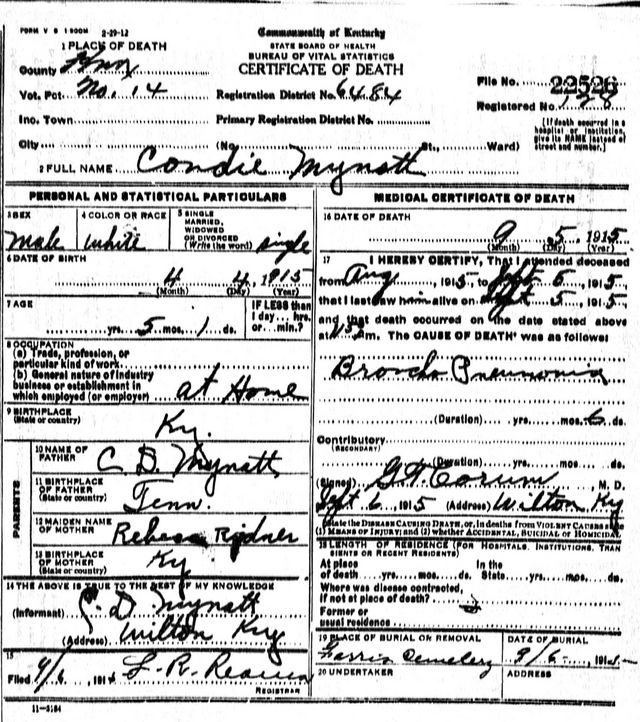 FORM V S 1 500M 2-29-12
Commonwealth of Kentucky
STATE BOARD OF HEALTH
BUREAU OF VITAL STATISTICS
CERTIFICATE OF DEATH
1 PLACE OF DEATH
County Knox
Vot. Pct. No. 14
Inc. Town
City
Registration District No. 6484
Primary Registration District No.
(No. St., Ward)
File No. 22526
Registered No. 128
[If death occurred in a
hospital or institution,
give its NAME instead of
street and number.]
2 FULL NAME Condie Mynatt
PERSONAL AND STATISTICAL PARTICULARS
3 SEX
Male
4 COLOR OR RACE
White
5 SINGLE
MARRIED,
WIDOWED
OR DIVORCED
(Write the word) Single
6 DATE OF BIRTH
4 4, 1915
(Month) (Day) (Year)
7 AGE
yrs. 5 mos. 1 ds.
IF LESS than
1 day...hrs.
or...min.?
8 OCCUPATION
(a) Trade, profession, or
particular kind of work
(b) General nature of industry
business or establishment in
which employed (or employer) at Home
9 BIRTHPLACE
(State or country) Ky.
PARENTS
10 NAME OF
FATHER C. D. Mynatt
11 BIRTHPLACE
OF FATHER
(State or country) Tenn.
12 MAIDEN NAME
OF MOTHER
13 BIRTHPLACE
OF MOTHER
(State or country) Ky
14 THE ABOVE IS TRUE TO THE BEST OF MY KNOWLEDGE
(Informant) C. D. Mynatt
(Address) Wilton Ky
15
Filed 9/6, 191
REGISTRAR
11-3184
MEDICAL CERTIFICATE OF DEATH
16 DATE OF DEATH
9 5, 1915
(Month) (Day) (Year)
17 I HEREBY CERTIFY, That I attended deceased
from Aug, 1915, to Sept 5, 1915,
that I last saw him alive on Sept 5, 1915,
and that death occurred on the date stated above
at m. The CAUSE OF DEATH was as follows:
Broncho Pneumonia
(Duration) yrs. mos. 6 ds.
Contributory
(SECONDARY)
(Duration) yrs. mos. ds.
(Signed) G. A. Corum M. D.
Sept 6, 1915 (Address) Wilton Ky
State the DISEASE CAUSING DEATH, or, in deaths from VIOLENT CAUSES state
(1) MEANS OF INJURY; and (2) whether ACCIDENTAL, SUICIDAL or HOMICIDAL
18 LENGTH OF RESIDENCE (FOR HOSPITALS, INSTITUTIONS, TRAN
SIENTS OR RECENT RESIDENTS)
At place In the
of death yrs. mos. ds. State yrs. mos. ds.
Where was disease contracted,
if not at place of death?
Former or
usual residence
19 PLACE OF BURIAL OR REMOVAL
Farris Cemetery
DATE OF BURIAL
9/6, 191
20 UNDERTAKER
ADDRESS